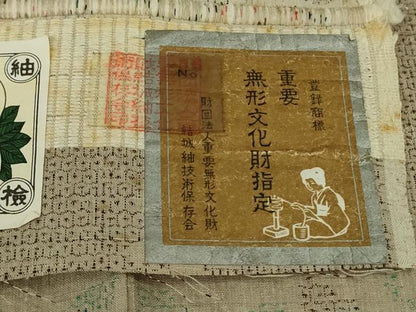 登録商標
重要
無形文化財指定
財団法人重要無形文化財
結城紬技術保存会
No.
紬
検